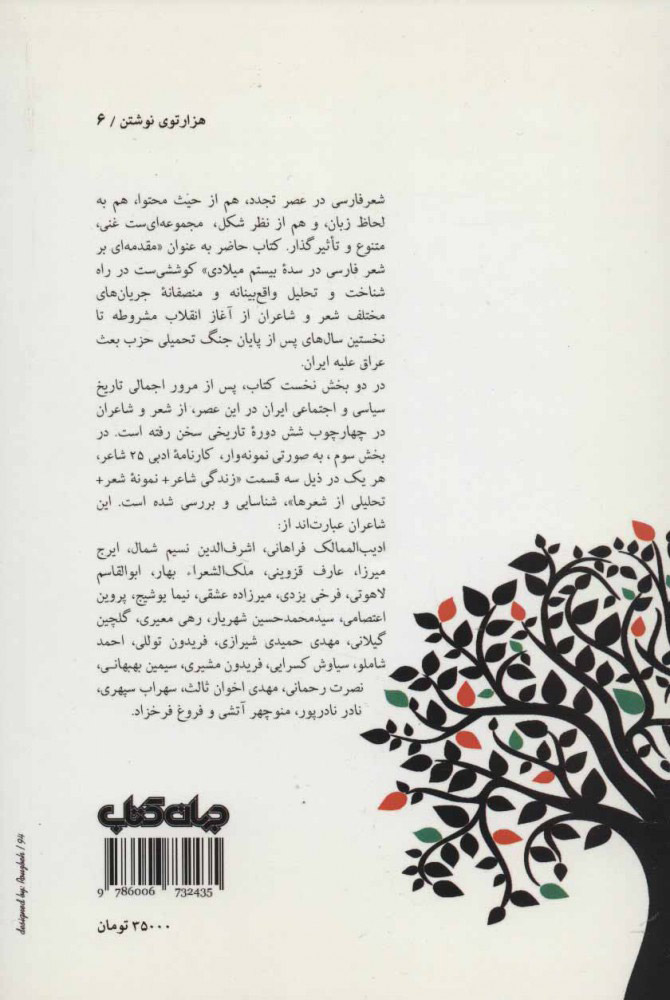 هزارتوی نوشتن / ۶
شعرفارسی در عصر تجدد، هم از حیَث محتوا، هم به
لحاظ زبان، و هم از نظر شکل، مجموعه‌ای‌ست غنی،
متنوع و تأثیرگذار. کتاب حاضر به عنوان «مقدمه‌ای بر
شعر فارسی در سدهٔ بیستم میلادی» کوششی‌ست در راه
شناخت و تحلیل واقع‌بینانه و منصفانهٔ جریان‌های
مختلف شعر و شاعران از آغاز انقلاب مشروطه تا
نخستین سال‌های پس از پایان جنگ تحمیلی حزب بعث
عراق علیه ایران.
در دو بخش نخست کتاب، پس از مرور اجمالی تاریخ
سیاسی و اجتماعی ایران در این عصر، از شعر و شاعران
در چهارچوب شش دورهٔ تاریخی سخن رفته است. در
بخش سوم ، به صورتی نمونه‌وار، کارنامهٔ ادبی ۲۵ شاعر،
هر یک در ذیل سه قسمت «زندگی شاعر+ نمونهٔ شعر+
تحلیلی از شعرها»، شناسایی و بررسی شده است. این
شاعران عبارت‌اند از:
ادیب‌الممالک فراهانی، اشرف‌الدین نسیم شمال، ایرج
میرزا، عارف قزوینی، ملک‌الشعراء بهار، ابوالقاسم
لاهوتی، فرخی یزدی، میرزاده عشقی، نیما یوشیج، پروین
اعتصامی، سیدمحمدحسین شهریار، رهی معیری، گلچین
گیلانی، مهدی حمیدی شیرازی، فریدون توللی، احمد
شاملو، سیاوش کسرایی، فریدون مشیری، سیمین بهبهانی،
نصرت رحمانی، مهدی اخوان ثالث، سهراب سپهری،
نادر نادرپور، منوچهر آتشی و فروغ فرخزاد.
جهان کتاب
9 786006 732435
۳۵۰۰۰ تومان
designed by: / 94